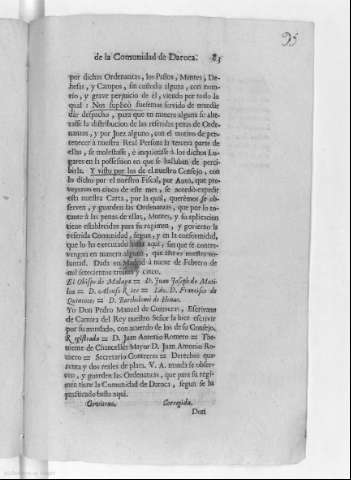 95
de la Comunidad de Daroca. 83
por dichas Ordenanzas, los Pastos, Montes, De-
hesas, y Campos, sin custodia alguna, con noto-
rio, y grave perjuicio de él, viendo por todo lo
qual: Nos suplicò fuessemos servido de mandàr
dàr despacho, para que en manera alguna se alte-
rasse la distribucion de las referidas penas de Orde-
nanzas, y por Juez alguno, con el motivo de per-
tenecer à nuestra Real Persona la tercera parte de
ellas, se molestasse, è inquietasse à los dichos Lu-
gares en la possession en que se hallaban de perci-
birla. Y visto por los de el nuestro Consejo, con
lo dicho por el nuestro Fiscal, por Auto, que pro-
veyeron en cinco de este mes, se acordò expedir
esta nuestra Carta, por la qual, querèmos se ob-
serven, y guarden las Ordenanzas, que por lo to-
cante à las penas de ellas, Montes, y su aplicacion
tiene establecidas para su regimen, y govierno la
referida Comunidad, segun, y en la conformidad,
que lo ha executado hasta aqui, sin que se contra-
venga en manera alguna, que assi es nuestra vo-
luntad. Dada en Madrid à nueve de Febrero de
mil setecientos treinta y cinco.
El Obispo de Malaga = D. Juan Joseph de Muti-
loa = D. Alonso Rico = Lic. D. Francisco de
Quincoces = D. Bartholomè de Henao.
Yo Don Pedro Manuel de Contreras, Escrivano
de Camara del Rey nuestro Señor la hice escrivir
por su mandado, con acuerdo de los de su Consejo.
Registrada = D. Juan Antonio Romero = The-
niente de Chancillèr Mayor D. Juan Antonio Ro-
mero = Secretario Contreras = Derechos qua-
renta y dos reales de plata. V. A. manda se obser-
ven, y guarden las Ordenanzas, que para su regi-
men tiene la Comunidad de Daroca, segun se ha
practicado hasta aqui.
Govierno. Corregida.
Don